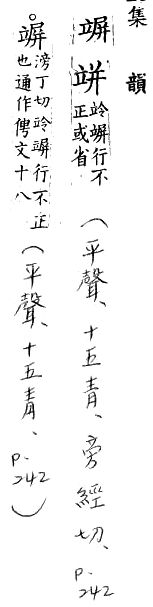 集韻
竮 竛行不
正或省
(平聲、十五青、旁經切、p.242
滂丁切竛行不正
也通作俜文十八
(平聲、十五青、p.242)